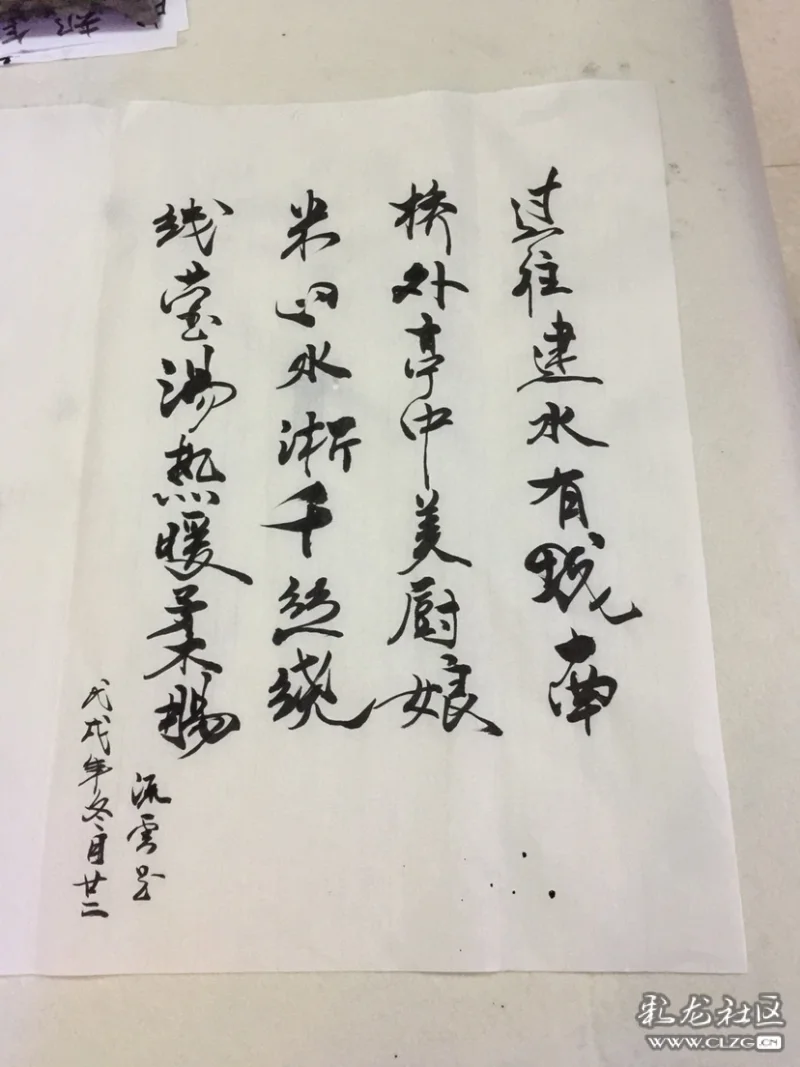 过往建水有
桥外亭中美厨娘
米水渐千丝绕
线莹汤热暖柔肠
流雲书
戊戌年冬月廿二
彩龙社区
WWW.CLZG.CN